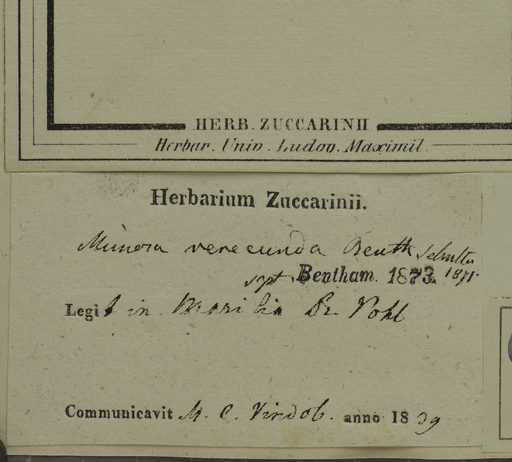 HERB. ZUCCARINII
Herbar. Univ. Ludov. Maximil.
Herbarium Zuccarinii.
Mimosa verecunda Benth
sept. Bentham. 1873. 1871.
Legit in Brasilia Dr. Pohl
Communicavit M. C. Vindob. anno 1839